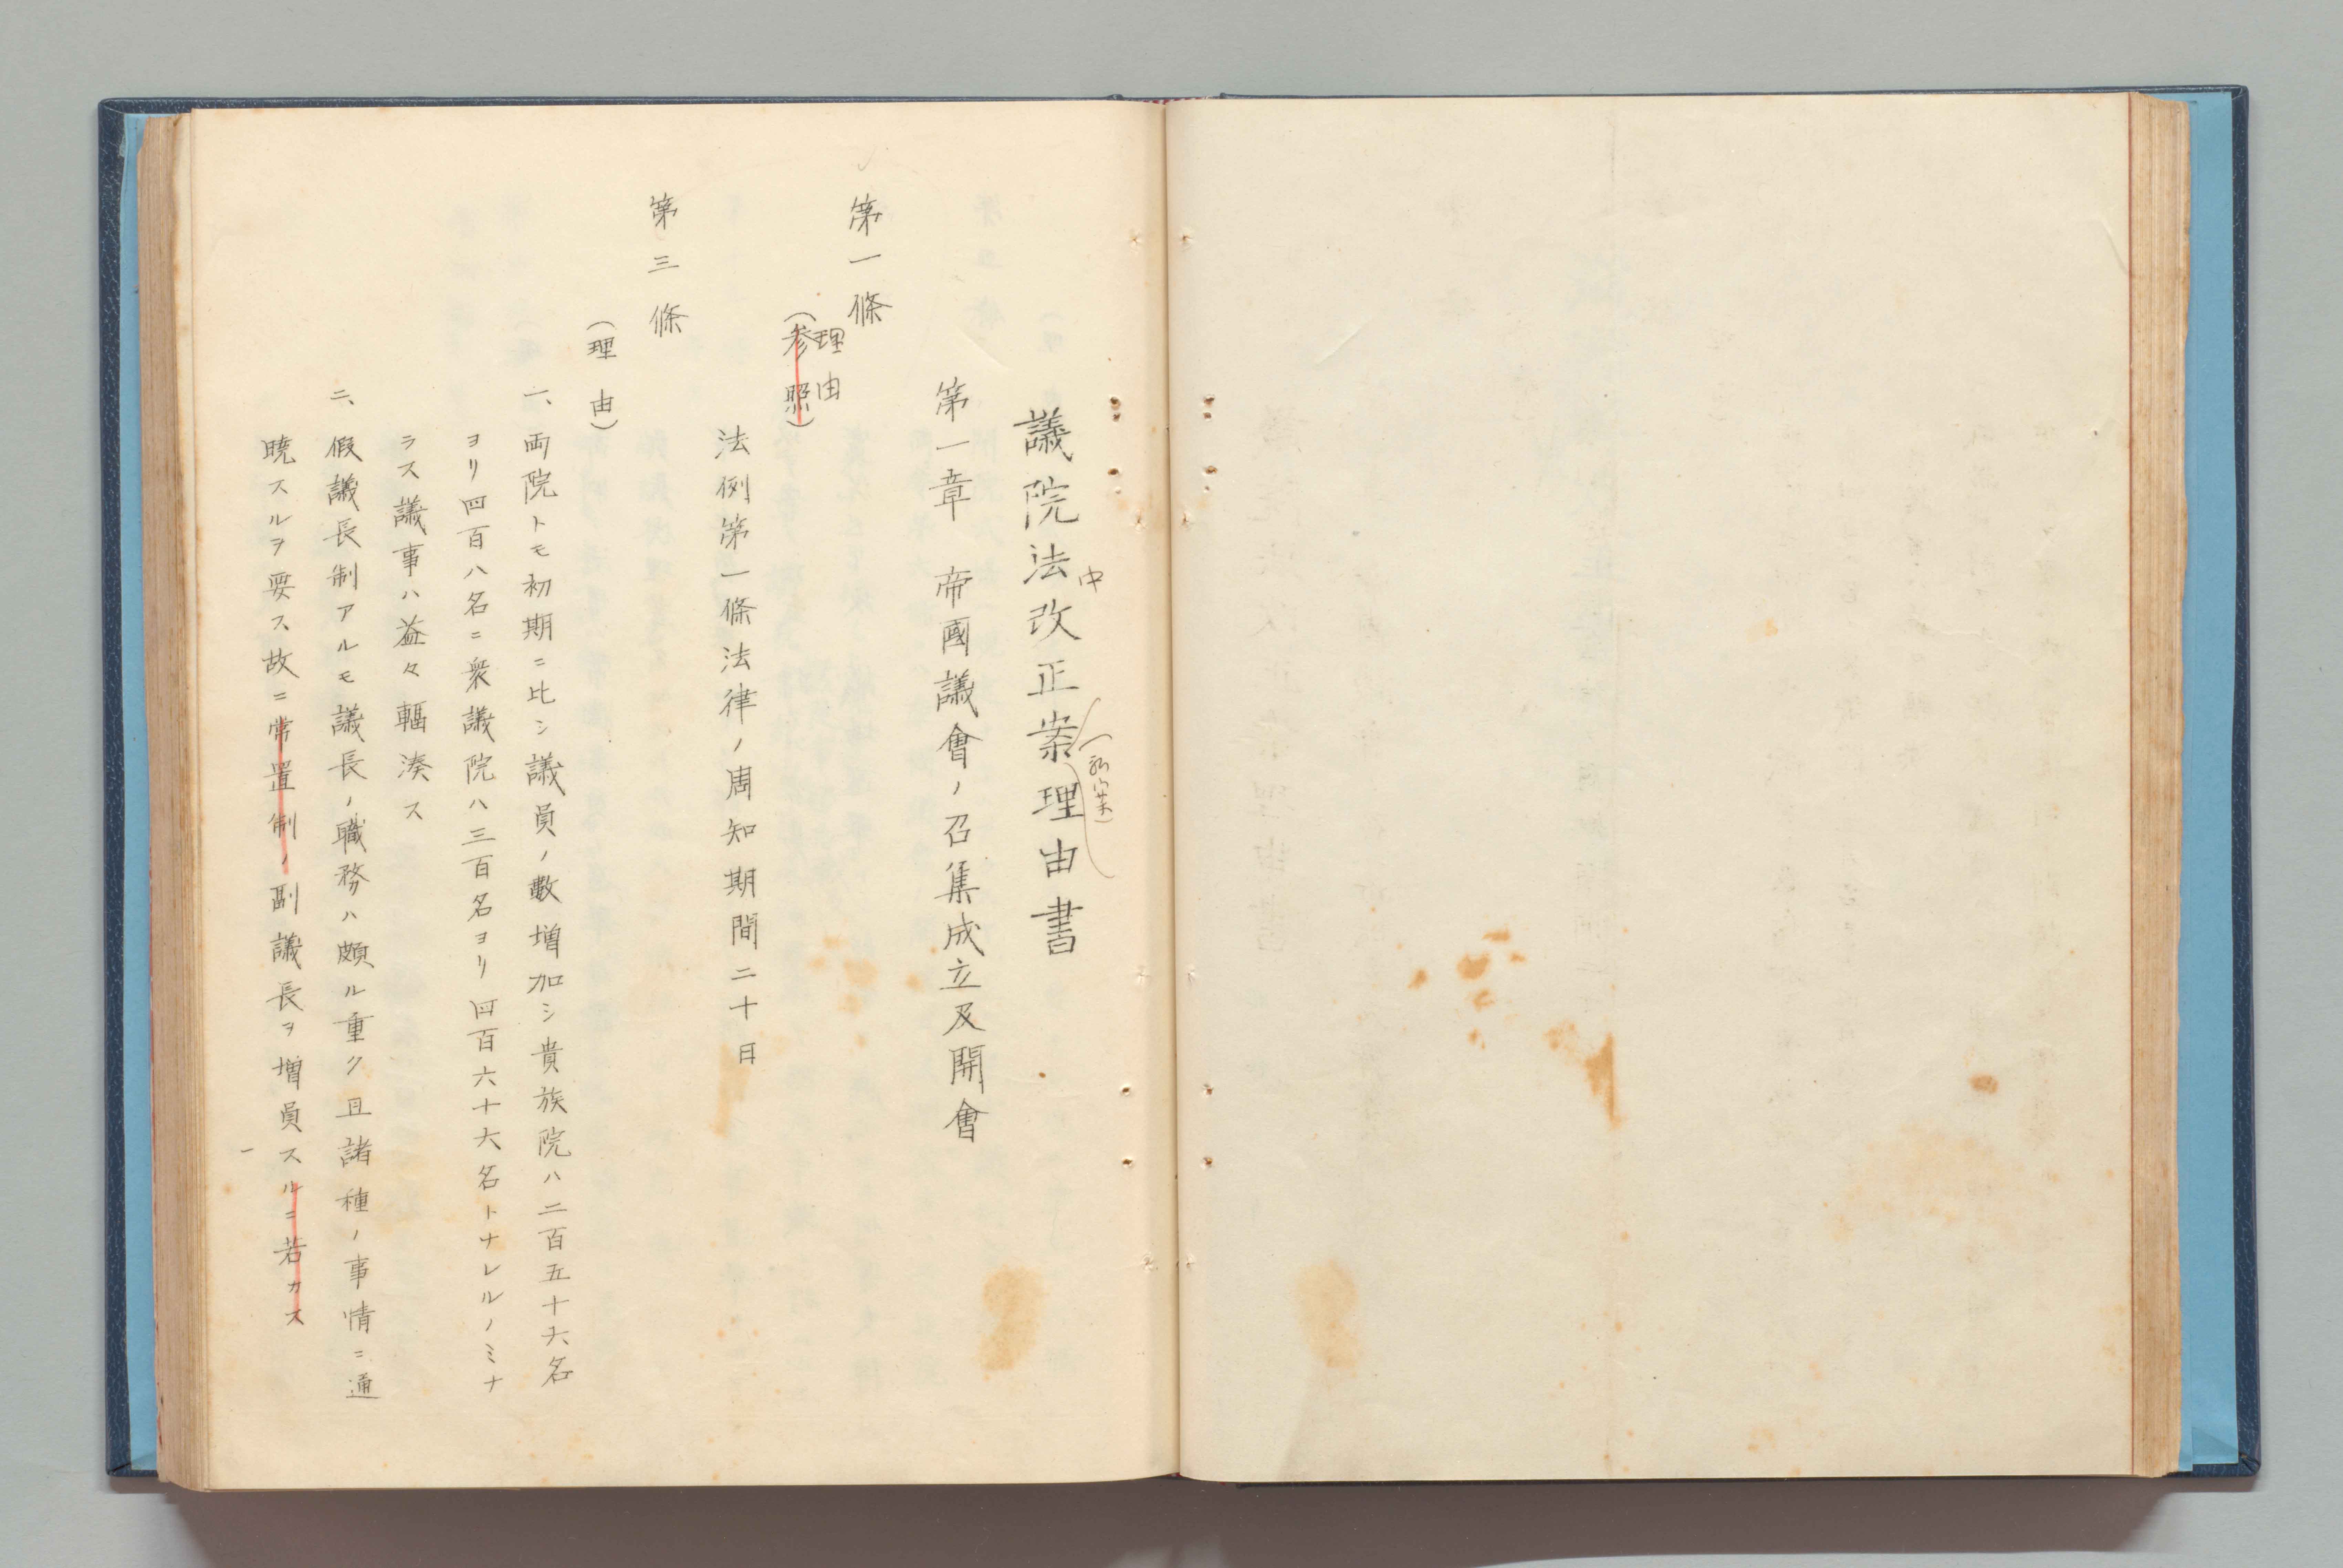 議院法中改正案理由書
(私案)
第一章 帝國議會ノ召集成立及開會
第一條
理由
(参照)
法例第一條法律ノ周知期間二十日
第三條
(理由)
一、両院トモ初期ニ比シ議員ノ數増加シ貴族院ハ二百五十六名
ヨリ四百八名ニ衆議院ハ三百名ヨリ四百六十六名トナレルノミナ
ラス議事ハ益々輻湊ス
二、假議長制アルモ議長ノ職務ハ頗ル重ク且諸種ノ事情ニ通
曉スルヲ要ス故ニ常置制ノ副議長ヲ増員スルニ若カス